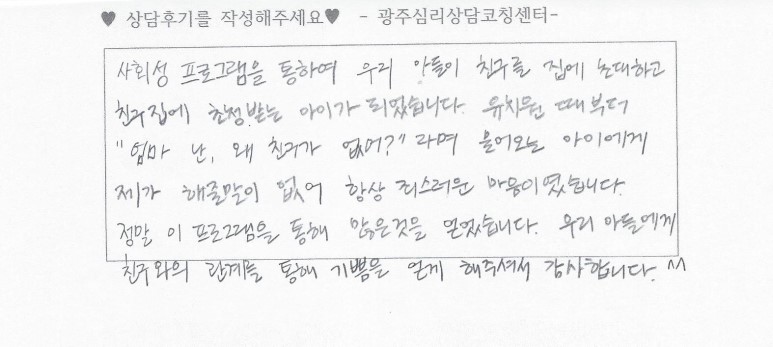 ♥ 상담후기를 작성해주세요♥ - 광주심리상담코칭센터-
사회성 프로그램을 통하여 우리 아들이 친구를 집에 초대하고
친구집에 초청받는 아이가 되었습니다. 유치원 때부터
"엄마 난, 왜 친구가 없어?" 라며 물어오는 아이에게
제가 해줄말이 없어 항상 죄스러운 마음이였습니다.
정말 이 프로그램을 통해 많은것을 얻었습니다. 우리 아들에게
친구와의 관계를 통해 기쁨을 얻게 해주셔서 감사합니다. ^^